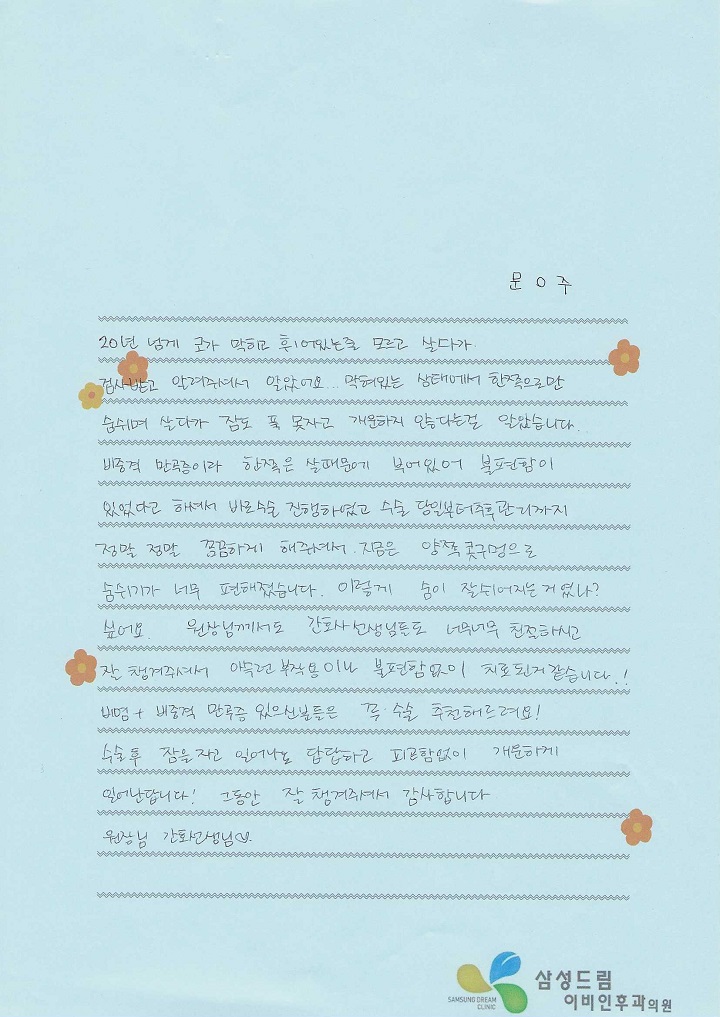 문ㅇ주
20년 넘게 코가 막히고 휘어있는줄 모르고 살다가
검사받고 알려주셔서 알았어요... 막혀있는 상태에서 한쪽으로만
숨쉬며 살다가 잠도 푹 못자고 개운하지 않는다는걸 알았습니다.
비중격 만곡증이라 한쪽은 살때문에 부어있어 불편함이
있었다고 하셔서 바로수술 진행하였고 수술 당일부터추후관리까지
정말 정말 꼼꼼하게 해주셔서 지금은 양쪽 콧구멍으로
숨쉬기가 너무 편해졌습니다. 이렇게 숨이 잘쉬어지는거였나?
싶어요. 원장님께서도 간호사선생님들도 너무너무 친절하시고
잘 챙겨주셔서 아무런 부작용이나 불편함없이 치료된거같습니다.!
비염 + 비중격 만곡증 있으신분들은 꼭 수술 추천해드려요!
수술후 잠을자고 일어나도 답답하고 피곤함없이 개운하게
일어난답니다! 그동안 잘 챙겨주셔서 감사합니다
원장님 간호선생님♡.
SAMSUNG DREAM
CLINIC
삼성드림
이비인후과의원